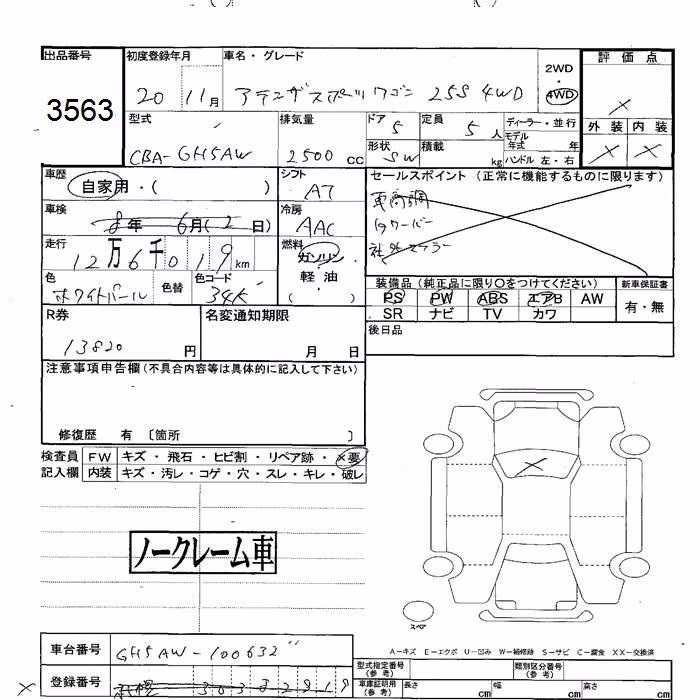 出品番号 初度登録年月 車名・グレード 2WD・4WD 評価点
3563 20 11月 アテンザスポーツワゴン 25S 4WD ×
型式 排気量 ドア 5 定員 5人 ディーラー・並行 外装 内装
モデル年式 年
CBA-GH5AW 2500cc 形状 SW 積載 kg ハンドル 左・右 × ×
車歴 シフト セールスポイント(正常に機能するものに限ります)
自家用・( ) AT 車高調
車検 冷房 タワーバー
8年 6月(2日) AAC 社外マフラー
走行 燃料
12万6千019km ガソリン
軽油
( )
色 色替 色コード 装備品(純正品に限り○をつけてください) 新車保証書
ホワイトパール 34K PS PW ABS エアB AW 有・無
SR ナビ TV カワ
R券 名変通知期限 後日品
13820円 月 日
注意事項申告欄(不具合内容等は具体的に記入して下さい)
修復歴 有 〔箇所 〕
検査員 FW キズ・飛石・ヒビ割・リペア跡・×要
記入欄 内装 キズ・汚レ・コゲ・穴・スレ・キレ・破レ
×
ノークレーム車
スペア
A-キズ E-エクボ U-凹み W-補修跡 S-サビ C-腐食 XX-交換済
車台番号 GH5AW-100632" 型式指定番号(参考) 類別区分番号(参考)
× 登録番号 303 8291 車庫証明用(参考) 長さ cm 幅 cm 高さ cm